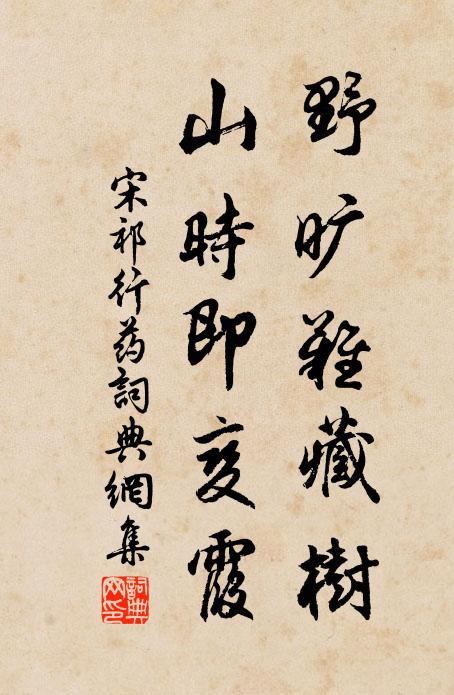 野旷难藏樹
山時即变霞
宋祁行药詞典網集
詞典網印